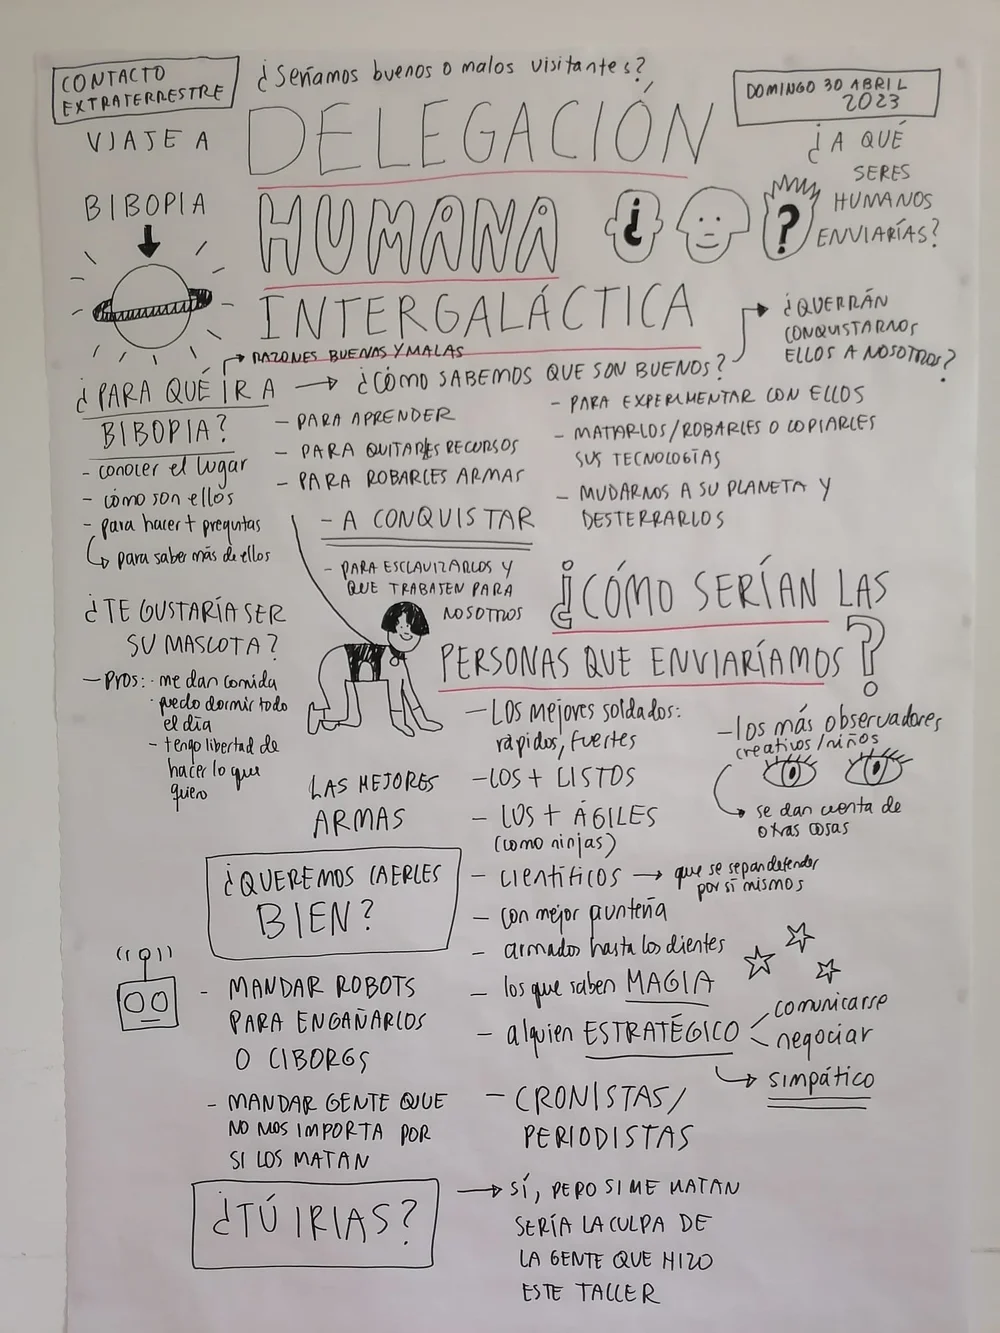 CONTACTO
EXTRATERRESTRE
¿Seríamos buenos o malos visitantes?
DOMINGO 30 ABRIL
2023
VIAJE A
BIBOPIA
DELEGACIÓN
HUMANA
INTERGALÁCTICA
¿
?
¿A QUÉ
SERES
HUMANOS
ENVIARÍAS?
RAZONES BUENAS Y MALAS
¿PARA QUÉ IR A
BIBOPIA?
- conocer el lugar
- cómo son ellos
- para hacer + preguntas
para saber más de ellos
¿CÓMO SABEMOS QUE SON BUENOS?
¿QUERRÁN
CONQUISTARNOS
ELLOS A NOSOTROS?
- PARA APRENDER
- PARA QUITARLES RECURSOS
- PARA ROBARLES ARMAS
- A CONQUISTAR
- PARA ESCLAVIZARLOS Y
QUE TRABAJEN PARA
NOSOTROS
- PARA EXPERIMENTAR CON ELLOS
- MATARLOS/ROBARLES O COPIARLES
SUS TECNOLOGÍAS
- MUDARNOS A SU PLANETA Y
DESTERRARLOS
¿TE GUSTARÍA SER
SU MASCOTA?
- Pros: · me dan comida
· puedo dormir todo
el día
- tengo libertad de
hacer lo que
quiero
¿CÓMO SERÍAN LAS
PERSONAS QUE ENVIARÍAMOS?
- LOS mejores soldados:
rápidos, fuertes
- LOS + LISTOS
- LOS + ÁGILES
(como ninjas)
- CIENTÍFICOS → que se sepan defender
por sí mismos
- con mejor puntería
- armados hasta los dientes
- los que saben MAGIA
- alguien ESTRATÉGICO
comunicarse
negociar
simpático
- CRONISTAS/
PERIODISTAS
- los más observadores
creativos/niños
se dan cuenta de
otras cosas
LAS MEJORES
ARMAS
¿QUEREMOS CAERLES
BIEN?
- MANDAR ROBOTS
PARA ENGAÑARLOS
O CIBORGS
- MANDAR GENTE QUE
NO NOS IMPORTA POR
SI LOS MATAN
¿TÚ IRIAS?
→ SÍ, PERO SI ME MATAN
SERÍA LA CULPA DE
LA GENTE QUE HIZO
ESTE TALLER